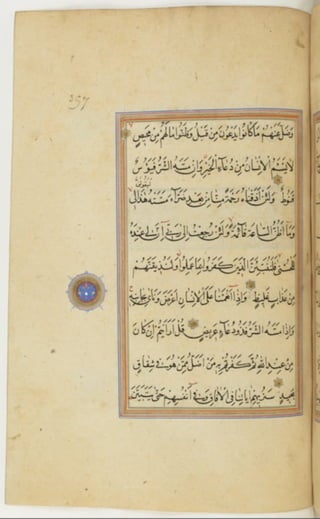 357
وَضَلَّ عَنْهُمْ مَا كَانُوا يَدْعُونَ مِنْ قَبْلُ وَظَنُّوا مَا لَهُمْ مِنْ مَحِيصٍ
لَا يَسْئَمُ الْإِنْسَانُ مِنْ دُعَاءِ الْخَيْرِ وَإِنْ مَسَّهُ الشَّرُّ فَيَؤُسٌ
قَنُوطٌ وَلَئِنْ أَذَقْنَاهُ رَحْمَةً مِنَّا مِنْ بَعْدِ ضَرَّاءَ مَسَّتْهُ لَيَقُولَنَّ هَذَا لِي
وَمَا أَظُنُّ السَّاعَةَ قَائِمَةً وَلَئِنْ رُجِعْتُ إِلَى رَبِّي إِنَّ لِي عِنْدَهُ
لَلْحُسْنَى فَلَنُنَبِّئَنَّ الَّذِينَ كَفَرُوا بِمَا عَمِلُوا وَلَنُذِيقَنَّهُمْ
مِنْ عَذَابٍ غَلِيظٍ وَإِذَا أَنْعَمْنَا عَلَى الْإِنْسَانِ أَعْرَضَ وَنَأَى بِجَانِبِهِ
وَإِذَا مَسَّهُ الشَّرُّ فَذُو دُعَاءٍ عَرِيضٍ قُلْ أَرَأَيْتُمْ إِنْ كَانَ
مِنْ عِنْدِ اللَّهِ ثُمَّ كَفَرْتُمْ بِهِ مَنْ أَضَلُّ مِمَّنْ هُوَ فِي شِقَاقٍ
بَعِيدٍ سَنُرِيهِمْ آيَاتِنَا فِي الْآفَاقِ وَفِي أَنْفُسِهِمْ حَتَّى يَتَبَيَّنَ